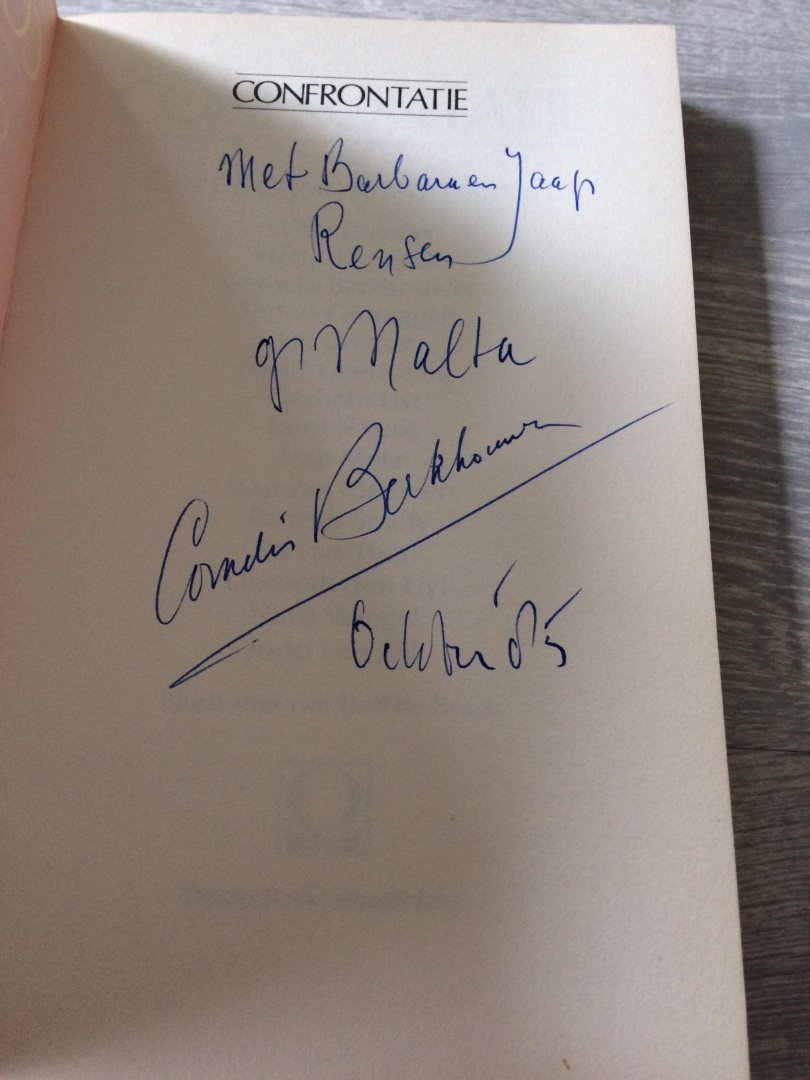 CONFRONTATIE
Met Barbara en Jaap
Rensen
op Malta
Cornelis Berkhouwer
October '85